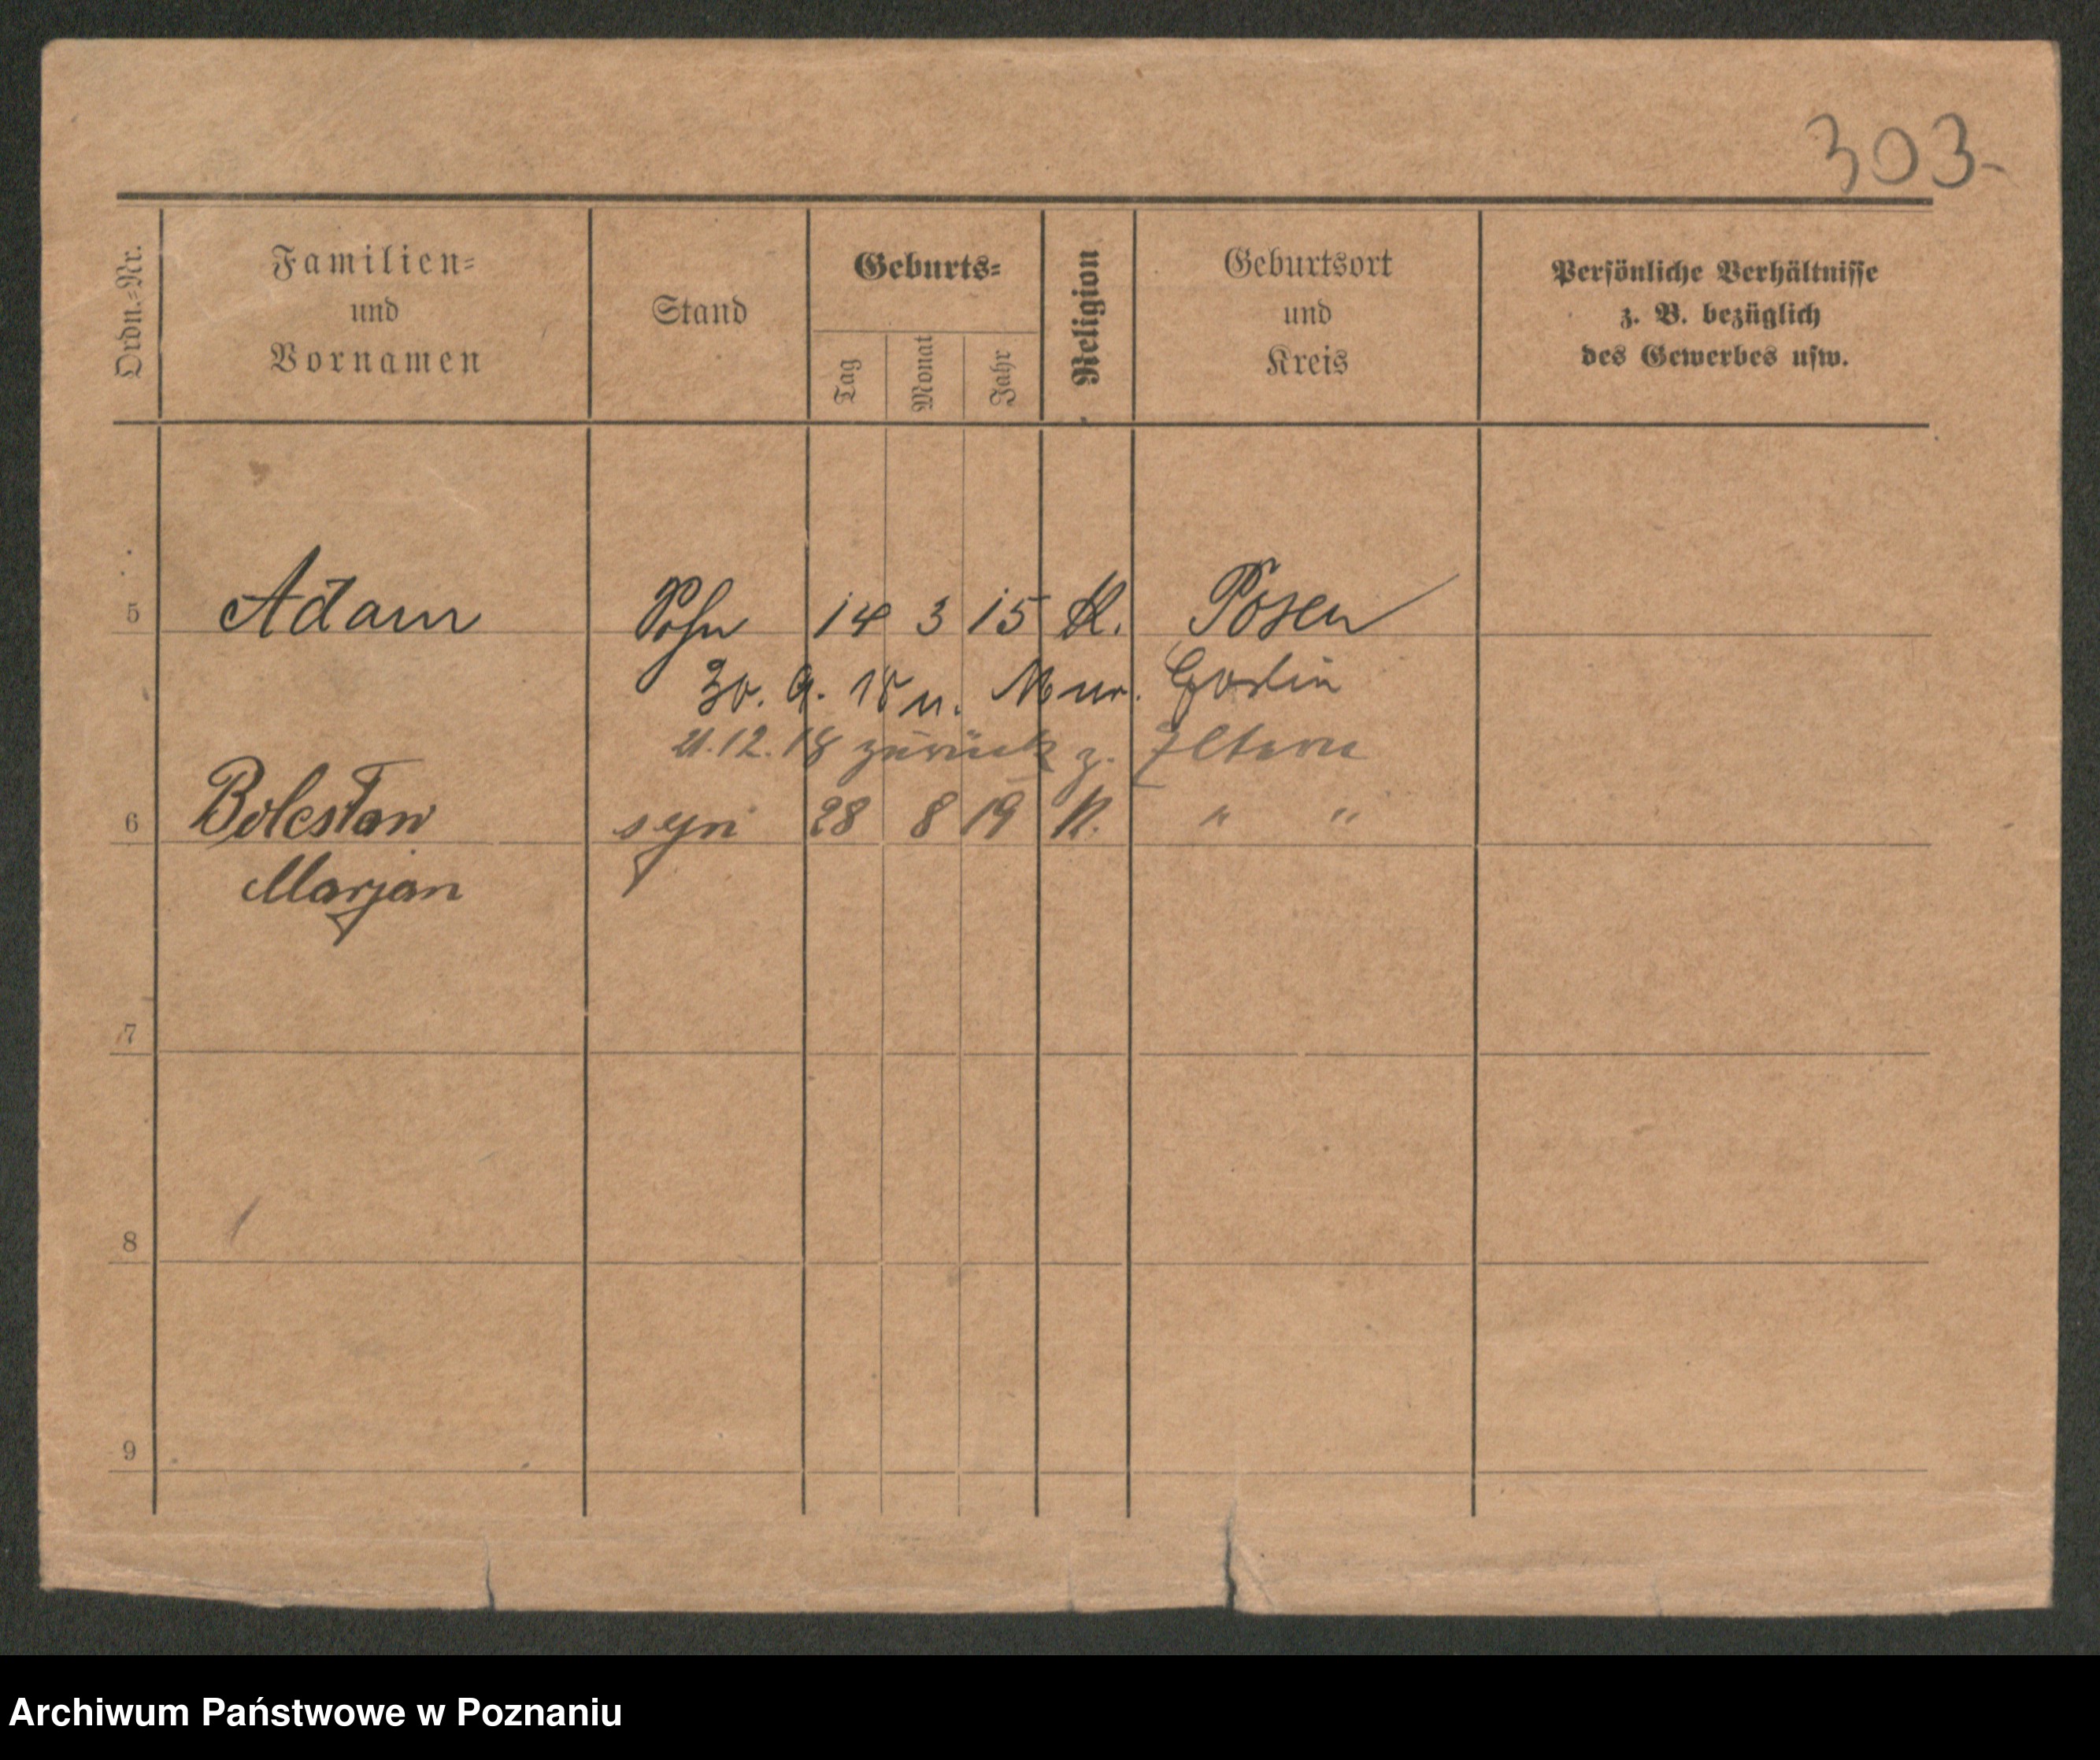 303-
Ordn.=Nr.
Familien=
und
Vornamen
Stand
Geburts=
Tag
Monat
Jahr
Religion
Geburtsort
und
Kreis
Persönliche Verhältnisse
z. B. bezüglich
des Gewerbes usw.
5 Adam Sohn 14 3 15 K. Posen
30. 9. 18 n. Mur. Goslin
21.12.18 zurück z. Eltern
6 Bolesław syn 28 8 19 K. " "
Marjan
7
8
9
Archiwum Państwowe w Poznaniu